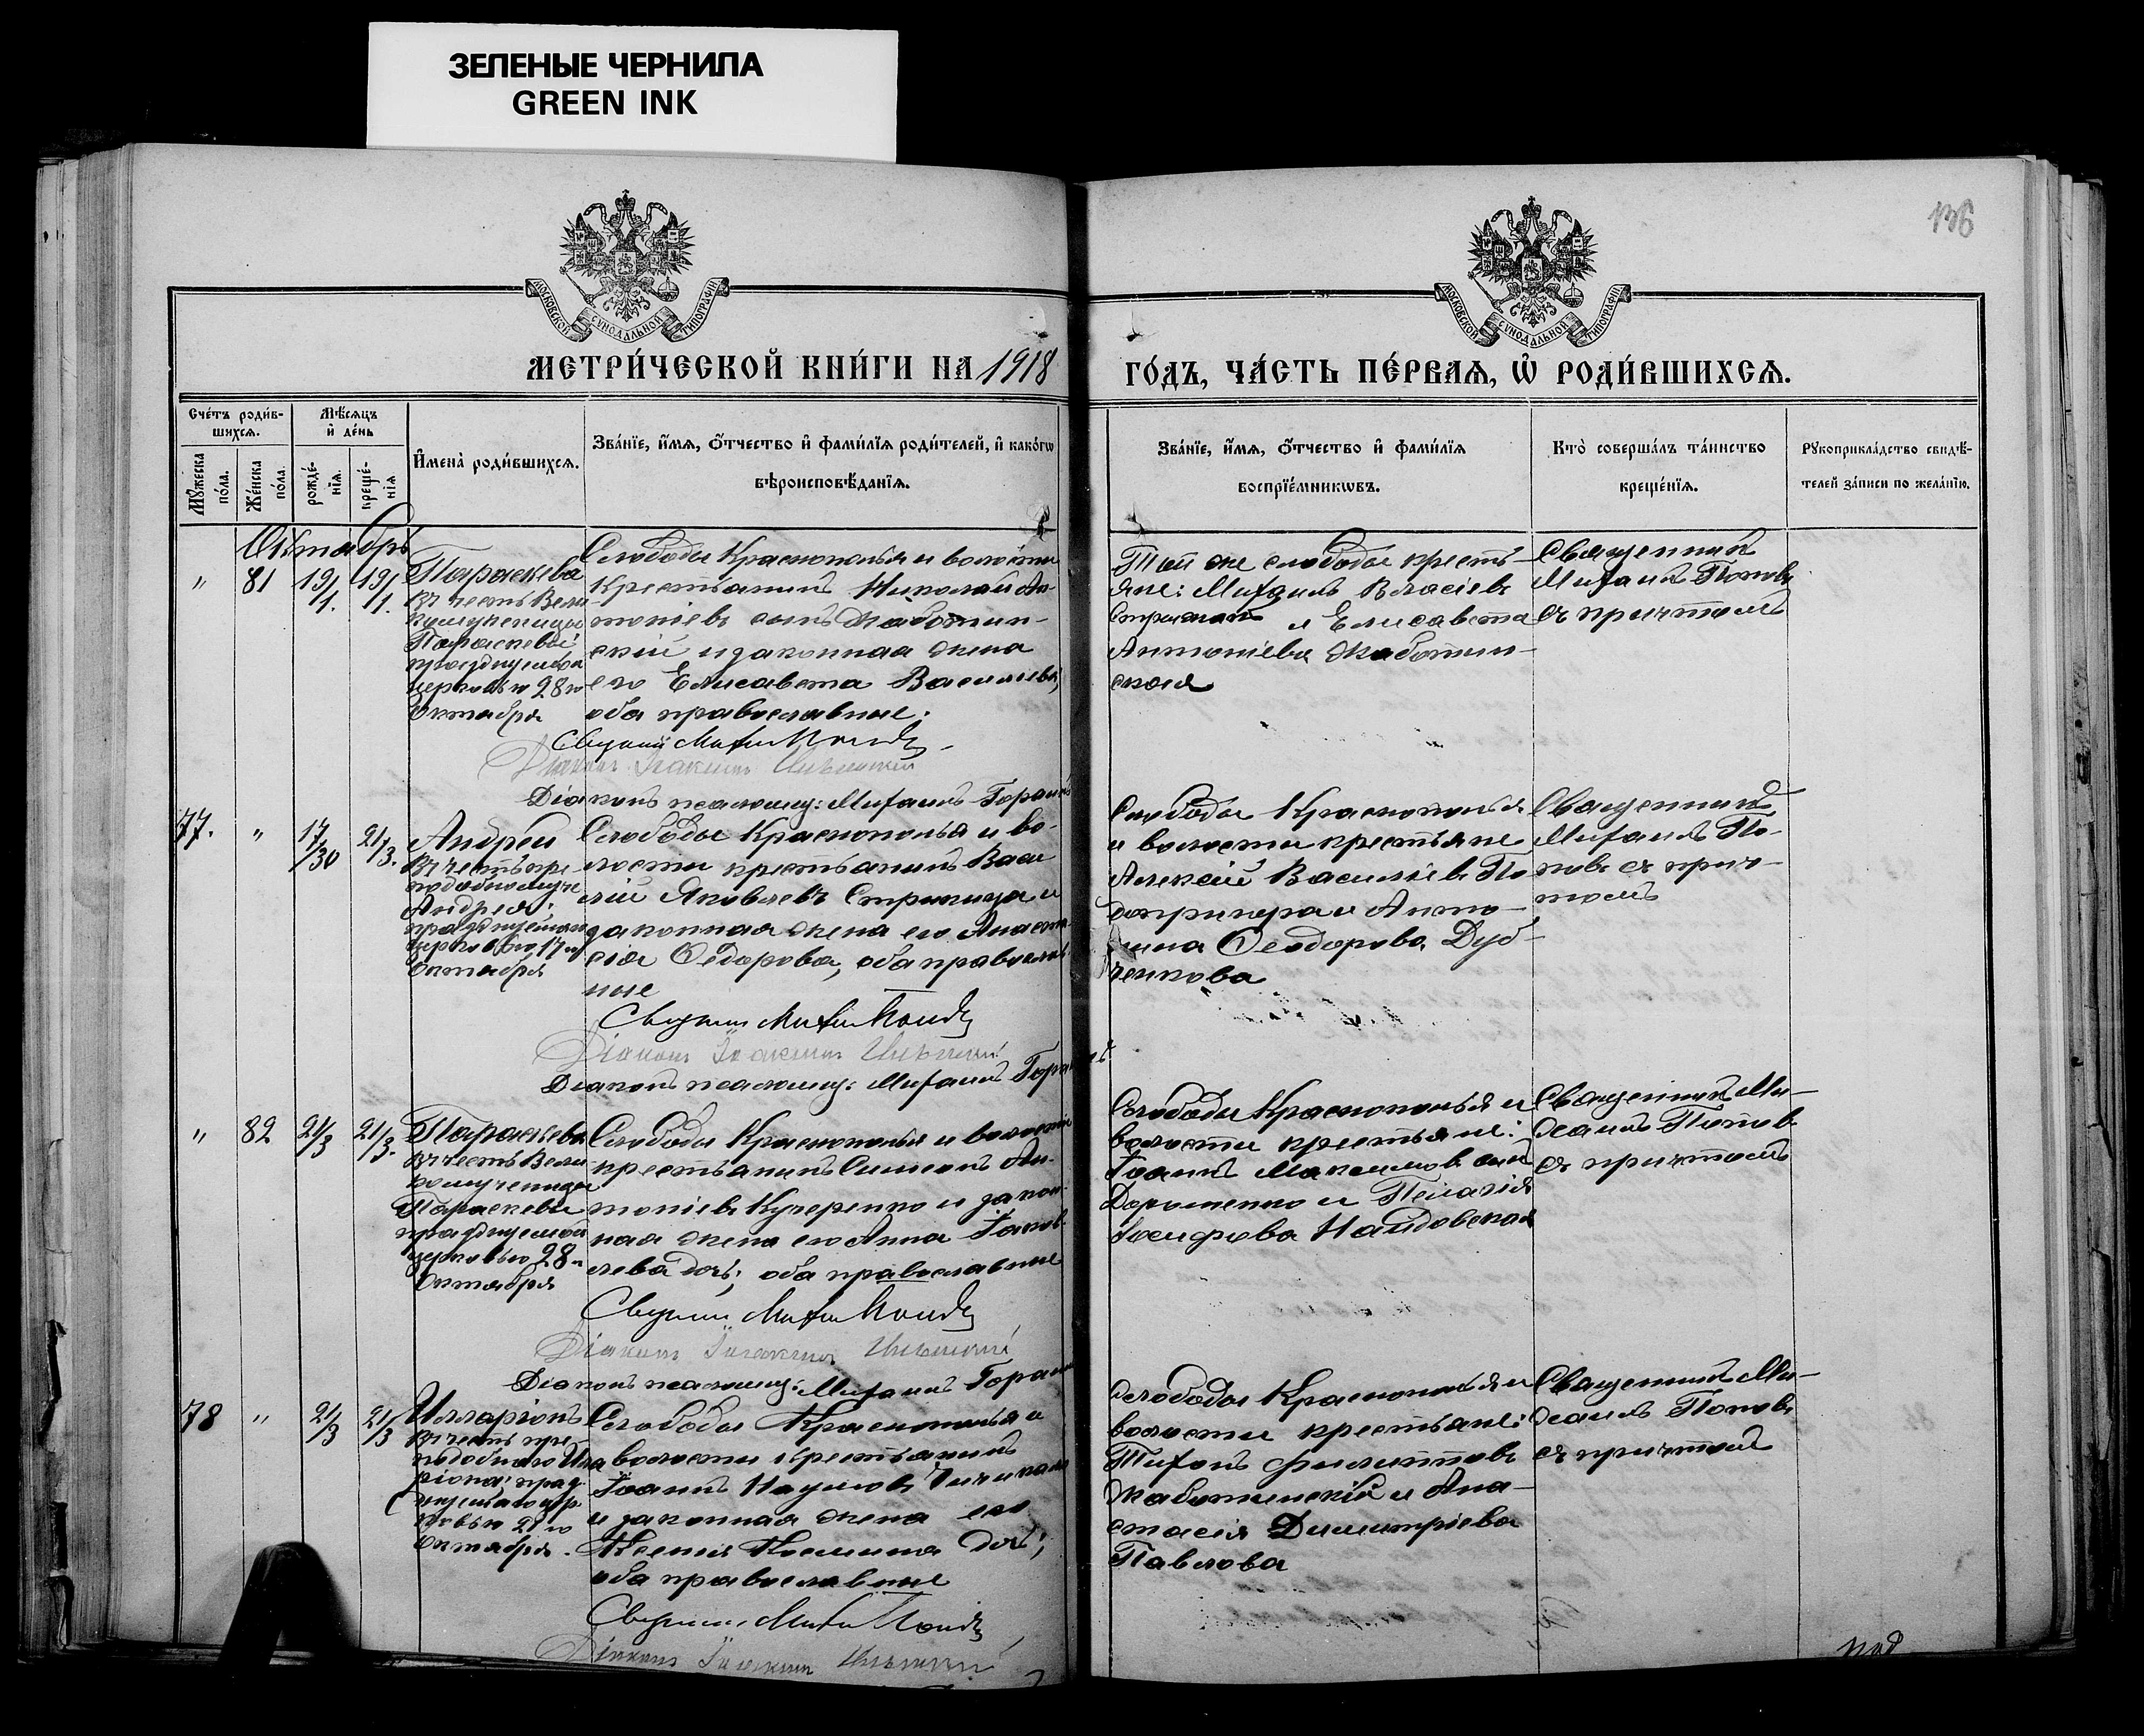 ЗЕЛЕНЫЕ ЧЕРНИЛА
GREEN INK
136
МОСКОВСКОЙ СѴНОДАЛЬНОЙ ТИПОГРАФІИ
МОСКОВСКОЙ СѴНОДАЛЬНОЙ ТИПОГРАФІИ
МЕТРИ́ЧЕСКОЙ КНИ́ГИ НА 1918
ГО́ДЪ, ЧА́СТЬ ПЕ́РВАѦ, Ѡ҆ РОДИ́ВШИХСѦ.
Сче́тъ роди́в-
шихсѧ.
Мꙋ́жеска
по́ла.
Же́нска
по́ла.
Мѣ́сѧцъ
и҆ де́нь
рожде́-
нїѧ.
креще́-
нїѧ
И҆мена̀ роди́вшихсѧ.
Зва́нїе, и҆́мѧ, ѻ҆́тчество и҆ фами́лїѧ роди́телей, и҆ како́гѡ
вѣроисповѣ́данїѧ.
Зва́нїе, и҆́мѧ, ѻ҆́тчество и҆ фами́лїѧ
воспрїе́мникѡвъ.
Кто̀ соверша́лъ та́инство
креще́нїѧ.
Рꙋкоприкла́дство свидѣ́-
телей за́писи по жела́нїю.
Октябрь
" 81 19/1. 19/1.
Параскева
въ честь Вели-
комученицы
Параскевы
празднуемой
церковью 28го
Октября
Слободы Краснополья и волости
крестьянинъ Николай Ан-
тоніевъ сынъ Жаботин-
скій и законная жена
его Елисавета Василіева,
оба православные.
Діаконъ псаломщ: Михаилъ
Той же слободы кресть-
яне: Михаилъ Власіевъ
и Елисавета
Антоніева Жаботин-
ская
Священникъ
Михаилъ Поповъ
съ причтомъ
77. " 17/30 21/3.
Андрей
въ честь пре-
подобномуч
Андрея,
празднуемаго
церковью 17го
Октября
Слободы Краснополья и во-
лости крестьянинъ Васи
лій Яковлевъ Стрижица и
законная жена его Анаста
сія Ѳедорова, оба православ
ные
Діаконъ псаломщ: Михаилъ
Слободы Краснополья
и волости крестьяне
Алексій Василіевъ По
допригора и Анто-
нина Ѳеодорова Дуб-
ченкова
Священникъ
Михаилъ По-
повъ съ прич-
томъ
" 82 21/3 21/3.
Параскева
въ честь Вели-
комученицы
Параскевы
празднуемой
церковью 28го
Октября
Слободы Краснополья и волости
крестьянинъ Симеонъ Ан-
тоніевъ Кучеренко и закон-
ная жена его Анна Іаков-
лева дочь; оба православные
Діаконъ псаломщ: Михаилъ
Слободы Краснополья и
волости крестьяне:
Іоаннъ Максимовъ сынъ
Дорошенко и Пелагія
Іосифова Найдовская
Священникъ Ми-
хаилъ Поповъ
съ причтомъ
78 " 21/3 21/3
Илларіонъ
въ честь пре-
подобнаго Ила
ріона, празд-
нуемаго цер-
ковью 21го
Октября.
Слободы Краснополья и
волости крестьянинъ
Іоаннъ Наумовъ
и законная жена его
Ксенія Космина дочь;
оба православные
Слободы Краснополья и
волости крестьяне:
Тихонъ Филипповъ
Жаботинскій и Ана-
стасія Димитріева
Павлова
Священникъ Ми-
хаилъ Поповъ
съ причтомъ